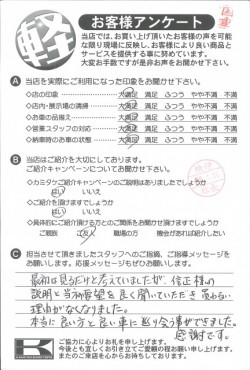 軽
お客様アンケート
当店では、お買い上げ頂いたお客様の声を可能
な限り現場に反映し、お客様により良い商品と
サービスを提供する事に努めています。
大変お手数ですが是非お声をお聞かせ下さい。
A 当店を実際にご利用になった印象をお聞かせ下さい。
◇店の印象 大満足 満足 ふつう やや不満 不満
◇店内・展示場の清掃 大満足 満足 ふつう やや不満 不満
◇お車の品揃え 大満足 満足 ふつう やや不満 不満
◇営業スタッフの対応 大満足 満足 ふつう やや不満 不満
◇納車時のお車の状態 大満足 満足 ふつう やや不満 不満
B 当店はご紹介を大切にしております。
ご紹介キャンペーンについてお聞かせ下さい。
◇カミタケご紹介キャンペーンのご説明はありましたでしょうか
はい いいえ
◇ご紹介を頂けますでしょうか
はい いいえ
◇具体的にご紹介頂ける方とのご関係をお聞かせ頂けますでしょうか
ご親族 ご友人 職場の方 機会があれば紹介したい
C 担当させて頂きましたスタッフへのご指摘、ご指導メッセージを
お願いします。応援メッセージもぜひお願いします。
最初は見るだけと考えていましたが、信正様の
説明と当方の要望を良く聞いていただき買わない
理由がなくなりました。
本当に良い方と良い車に巡り合う事ができました。
感謝です。
K
ご協力に心よりお礼を申し上げます。
今後とも宜しくお引き立てご愛顧の程お願い申し上げます。
またのご来店を心からお待ちしております。